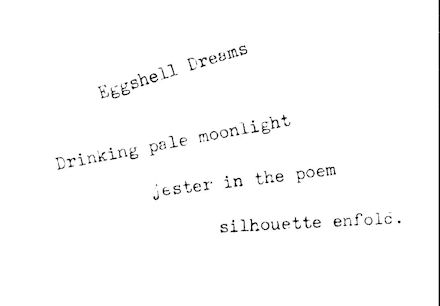 Eggshell Dreams
Drinking pale moonlight
jester in the poem
silhouette enfold.